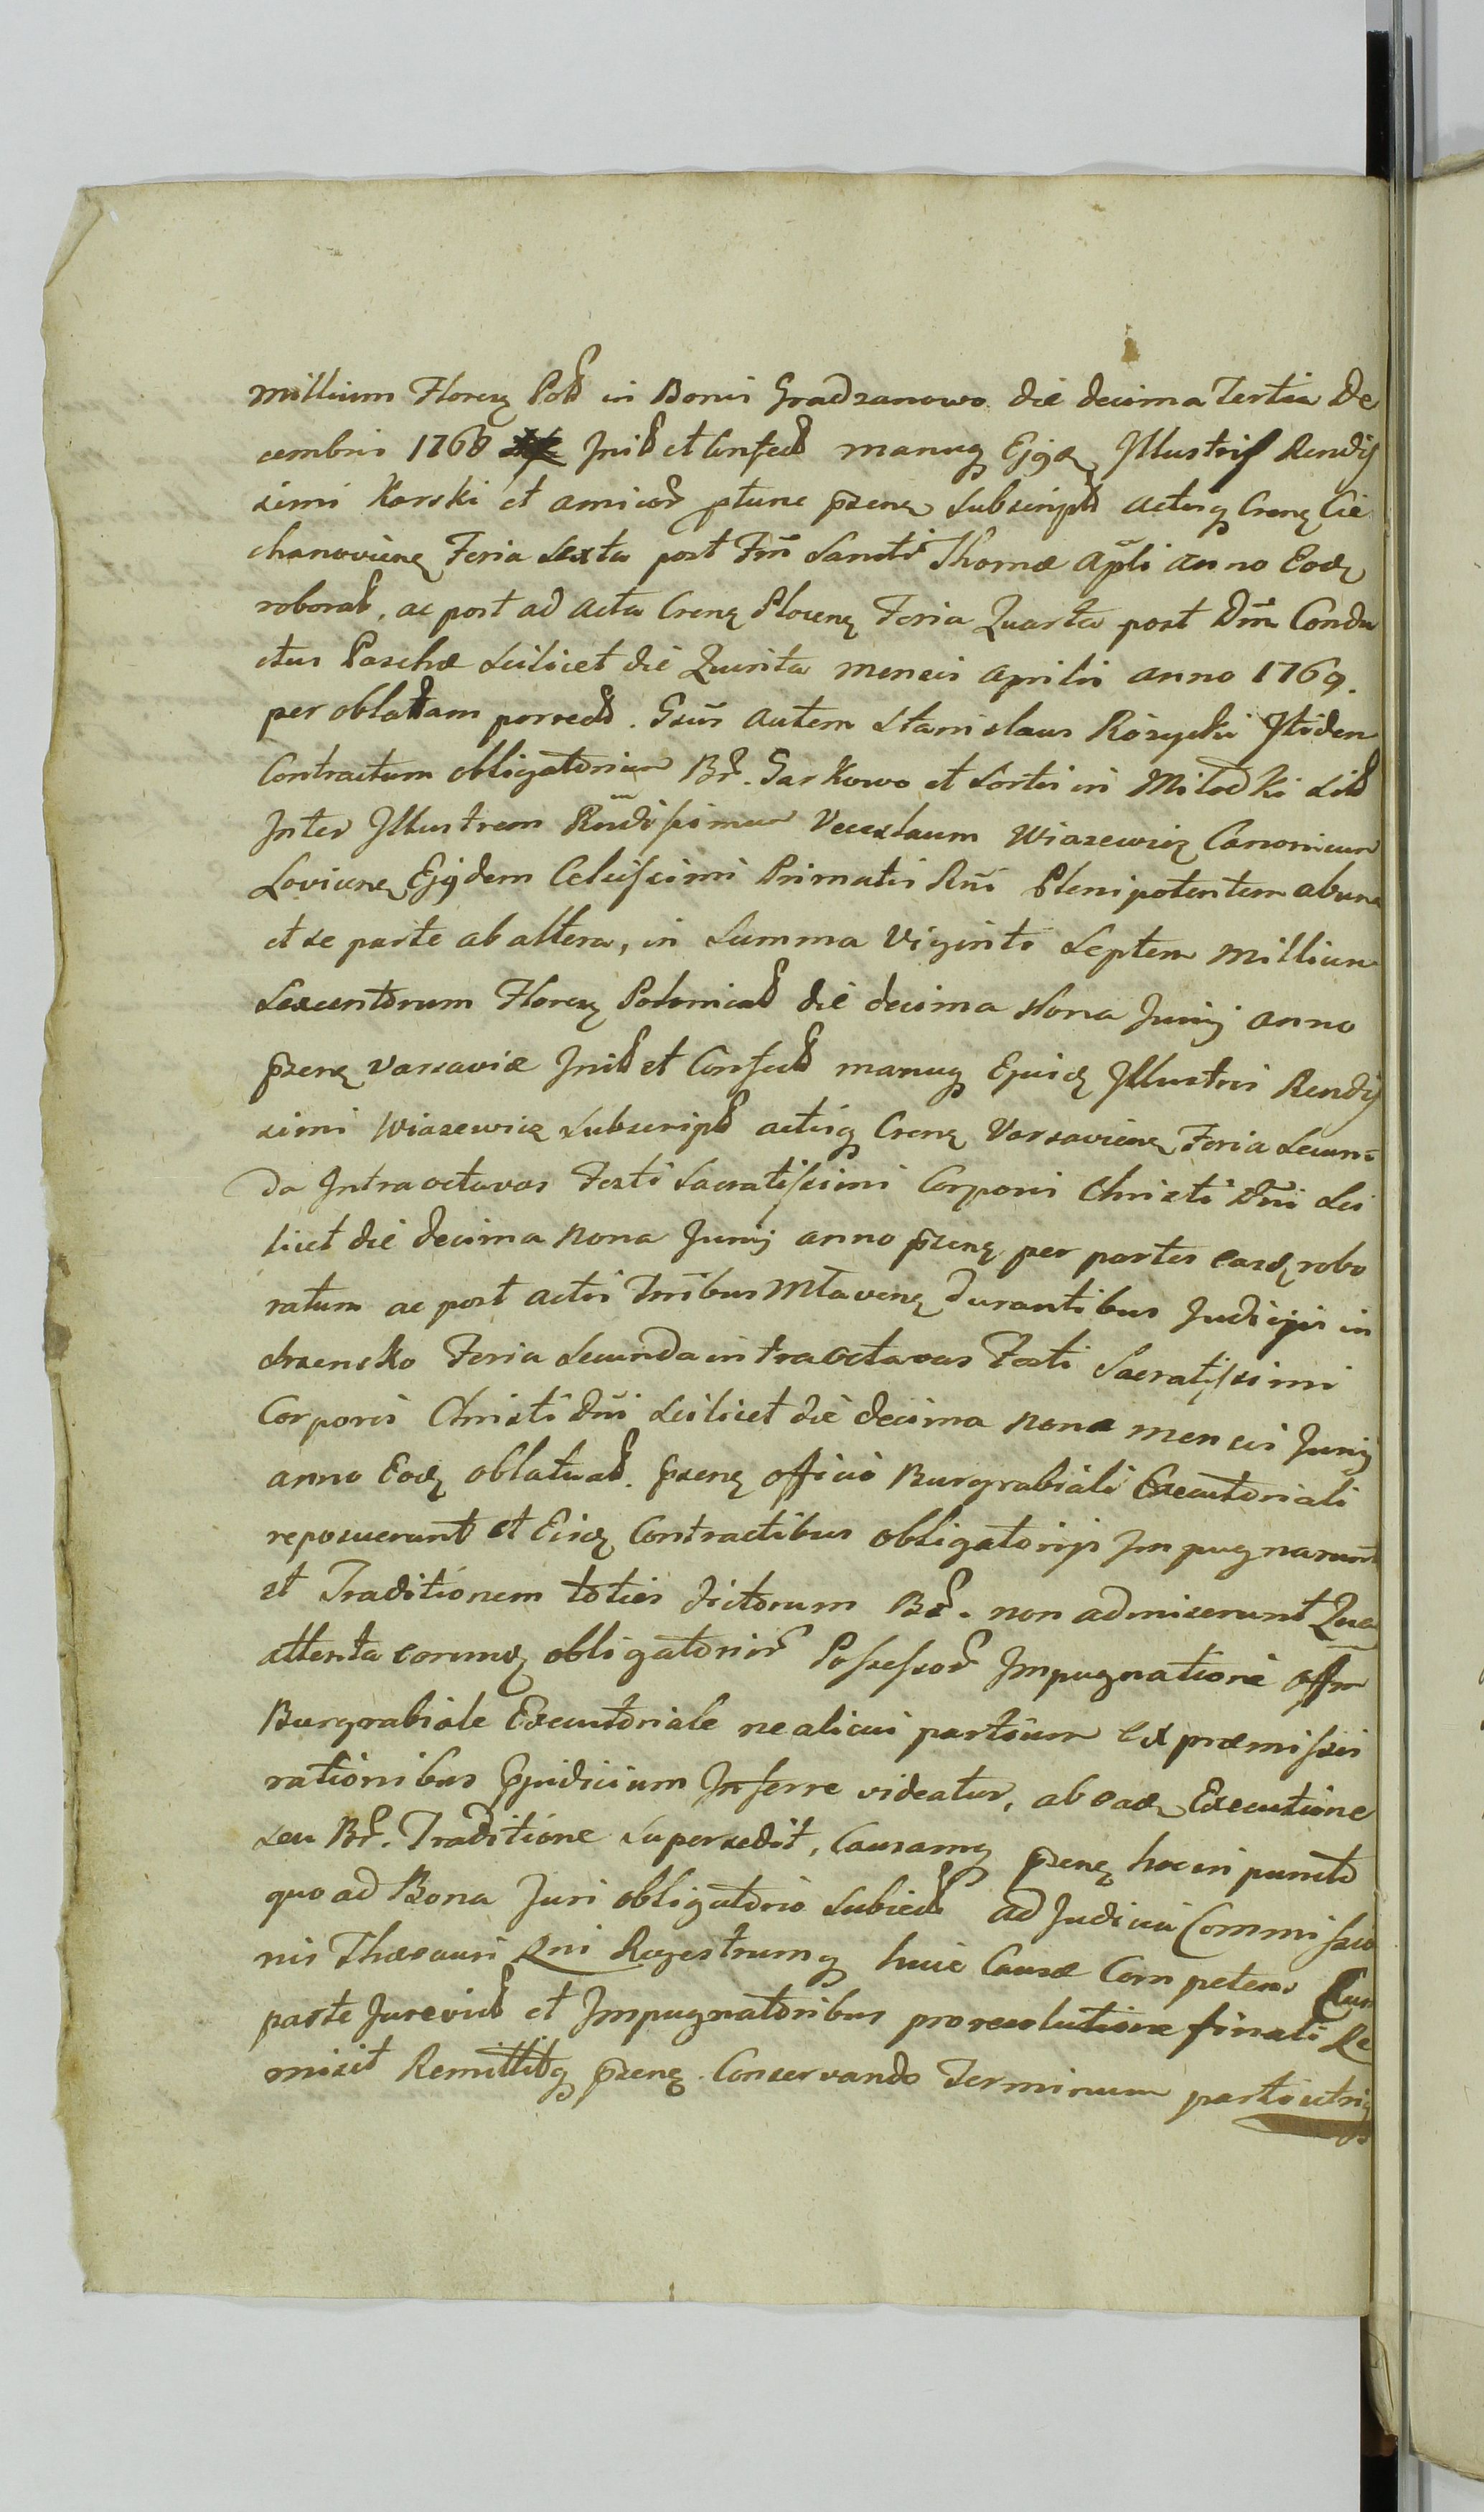 millium Floreņ Polł in Bonis Gradzanowo die decima Tertia De
cembris 1768 Initł et Confectł manuq Ejqdꝫ Illustris Rendis
simi Karski et amicoꝝ ptunc pñseņ Subscriptł actisq Crenꝫ Cie
chanovienꝫ Feria Sexta post Fm̃ Sancti Thomæ Apl̃i anno Eodꝫ
roborał, ac post ad acta Crenꝫ Plocenꝫ Feria Quarta post Dm̃ Condu
ctus Paschæ Scilicet die Quinta mensis Aprilis anno 1769.
per oblatam porrectł. Gsũs autem Stanislaus Rózycki Itidem
Contractum obligatorium Br̃. Garkowo et Sortis in Miłodki Sitł
Inter Illustrem Rñdissimum Venceslaum Wiazewicz Canonicum
Lovicenꝫ Ejqdem Celsissimi Primatis Rñi Plenipotentem ab una
et se parte ab altera, in Summa Viginti Septem Millium
Sexcentorum Floreņ Polonicał die decima Nona Junij anno
pñsenꝫ Varsaviæ Initł et Confectł manuq Ejusdꝫ Illustris Rendis
simi Wiazewicz Subscriptł actisq Crenꝫ Varsavienꝫ Feria Secun=
da Intra octavas Festi Sacratissimi Corporis Christi Dñi Sci
licet die decima Nona Junij anno pñsenꝫ per partes easdꝫ robo
ratum ac post actis Tribus Mlavenꝫ durantibus Judicijs in
Szrensko Feria Secunda intra Octavas Festi Sacratissimi
Corporis Christi Dñi Scilicet die decima nona mensis Junij
anno Eodꝫ oblatuał. pñsenꝫ officio Burgrabiali Executoriali
reposuerunt et Eisdꝫ Contractibus obligatorijs Impugnarunt
et Traditionem toties dictorum Br̃. non admiserunt Qua
attenta eorumdꝫ obligatorioꝝ Possessoꝝ Impugnatione offm
Burgrabiale Executoriale ne alicui partium ex præmissis
rationibus Pjudicium Inferre videatur, ab eadꝫ Executione
seu Br̃. Traditione Supersedit, Causamq pñsenꝫ hoc in puncto
quo ad Bona Juri obligatorio Subiectł ad Judicia Commissio
nis Thesauri Rni Regestrumq huic Causæ Competens Cum
parte Jurevictł et Impugnatoribus pro resolutione finali Re
misit Remittitq pñsenꝫ. Conservando Terminum parti utriq